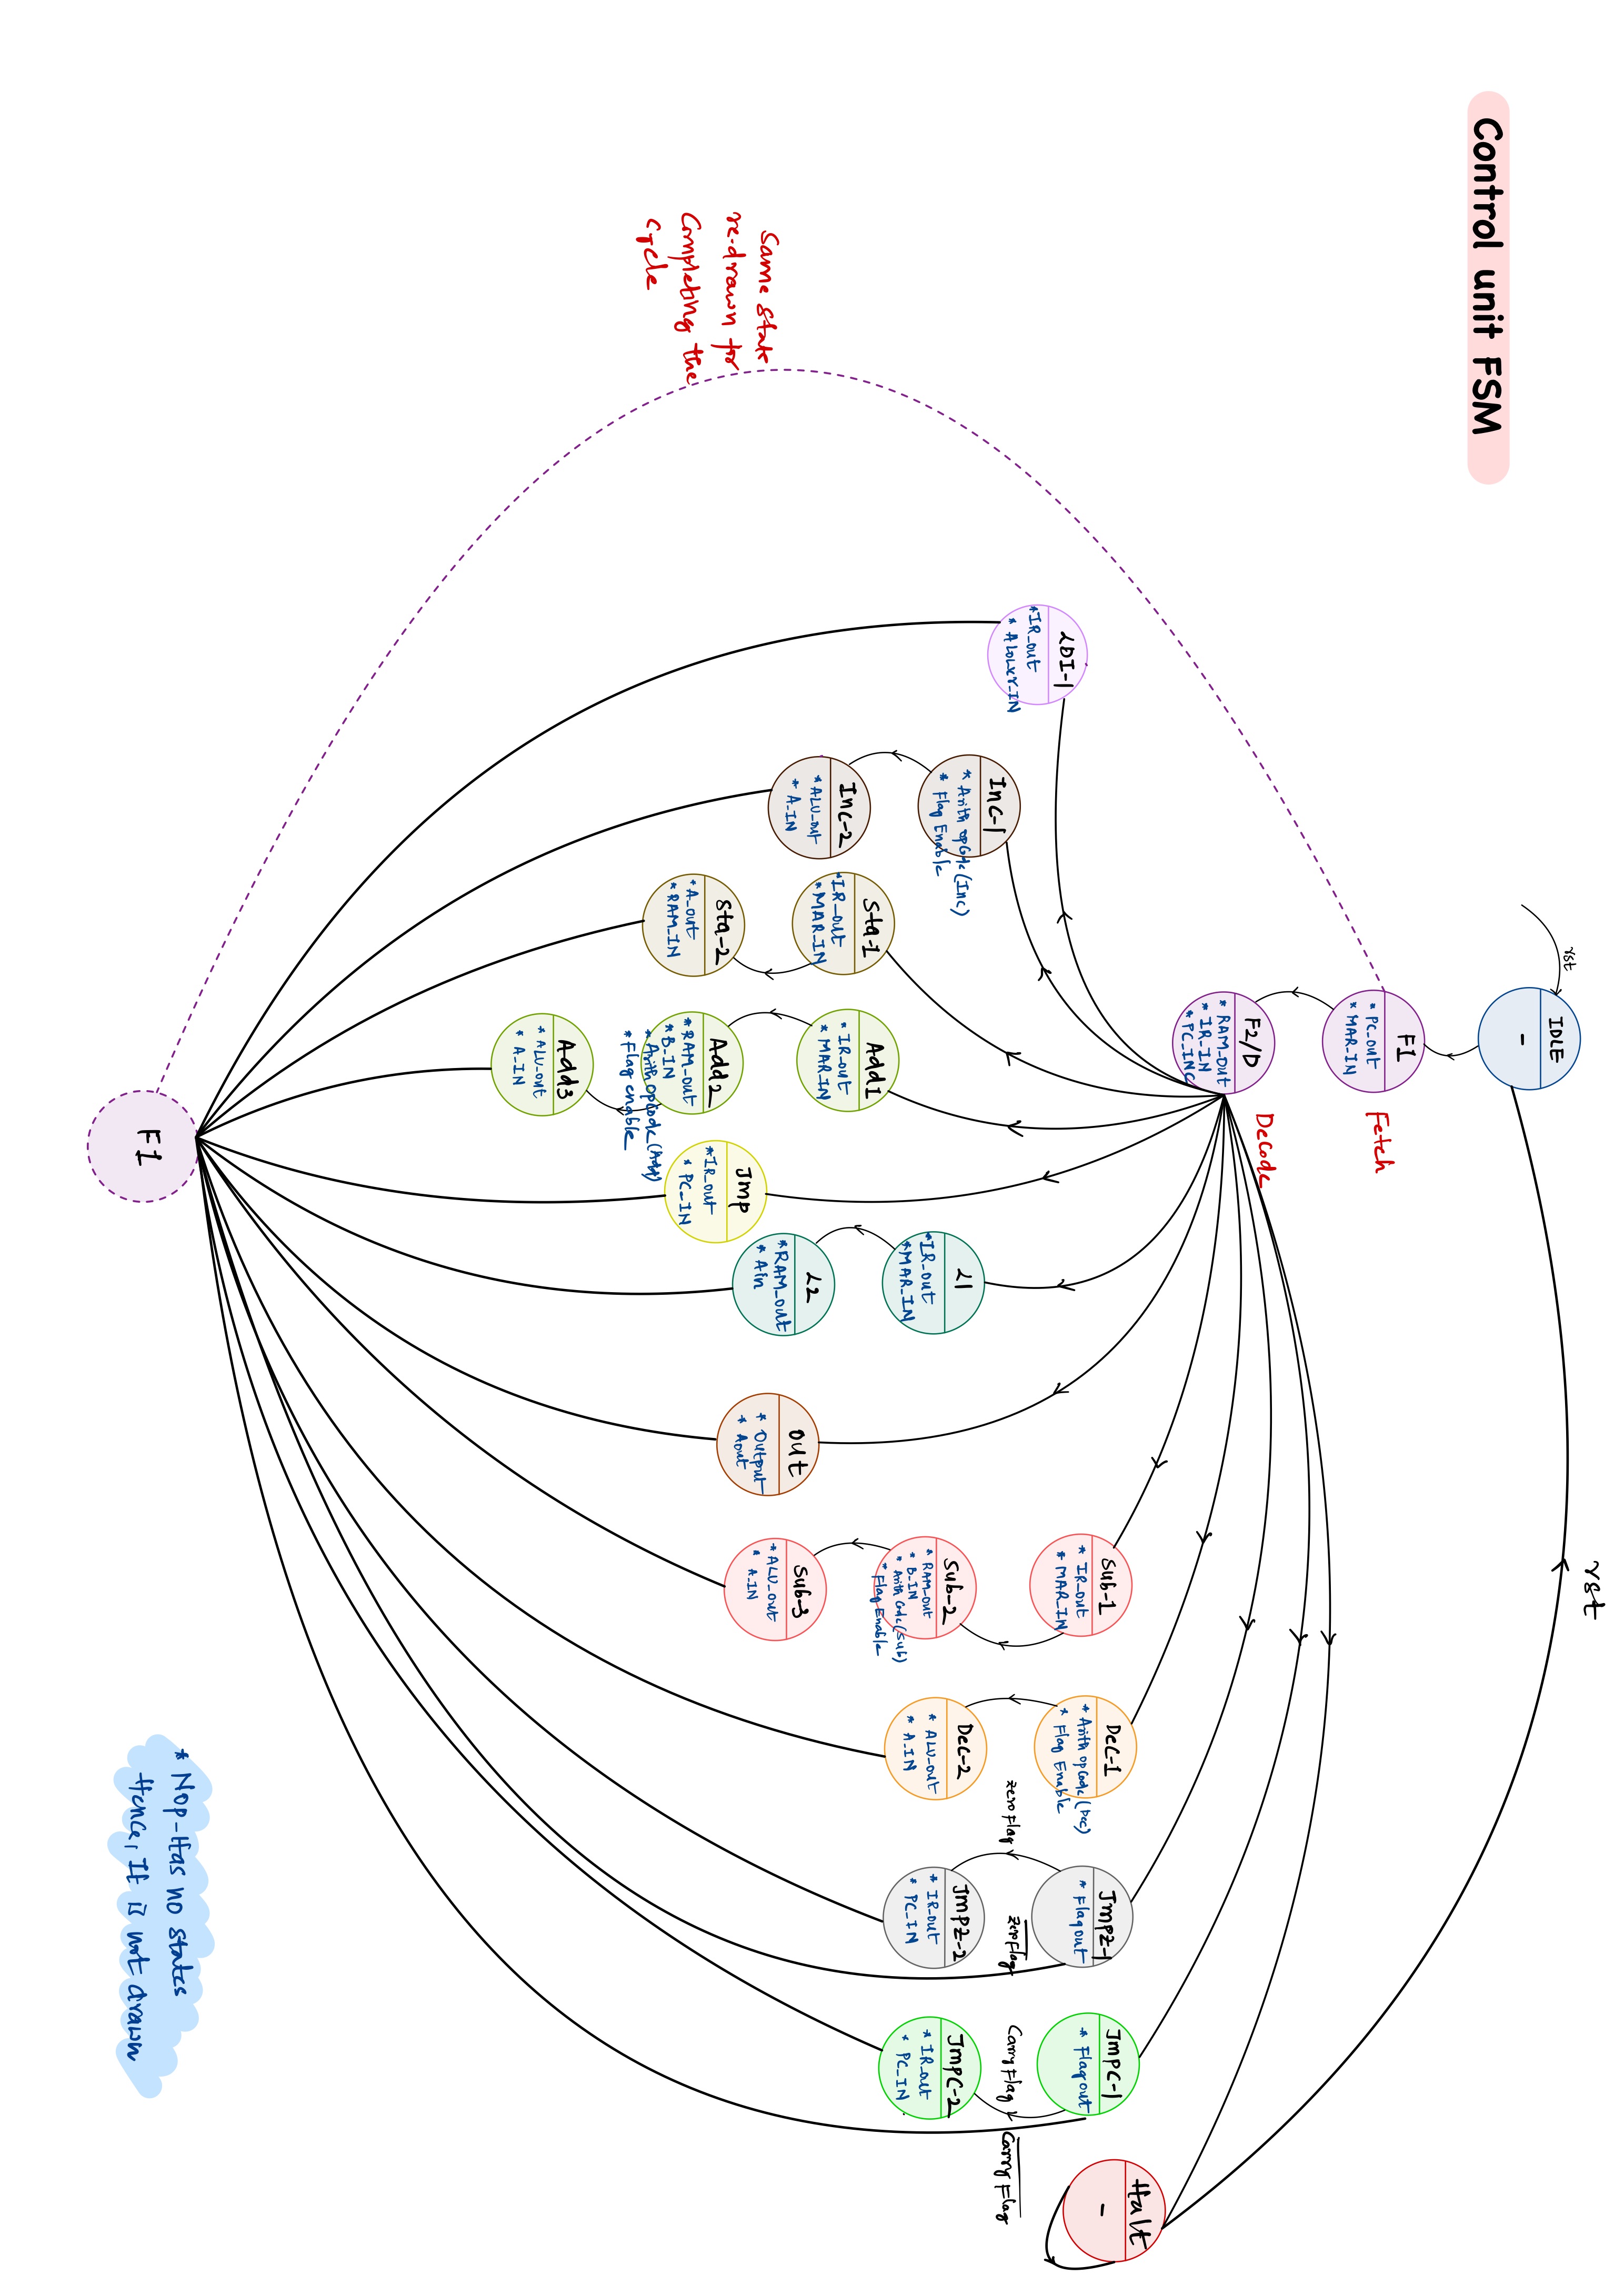 Control unit FSM
rst
IDLE
-
rst
F1
* PC_out
* MAR_IN
Fetch
F2/D
* RAM_out
* IR_IN
* PC_INC
Decode
LDI-1
*IR_out
* ALower_IN
Inc-1
* Arith opCode (Inc)
* Flag Enable
Inc-2
* ALU_out
* A_IN
Sta-1
*IR_out
*MAR_IN
Sta-2
*A_out
*RAM_IN
Add1
*IR_out
* MAR_IN
Add2
*RAM_out
*B_IN
*Arith opCode (Add)
*Flag enable
Add3
* ALU_out
* A_IN
Jmp
*IR_out
* PC_IN
L1
*IR_out
*MAR_IN
L2
*RAM_out
* Ain
out
* Output
* Aout
Sub-1
* IR_out
* MAR_IN
Sub-2
* RAM_out
* B_IN
* Arith Code (Sub)
* Flag Enable
Sub-3
*ALU_out
* A_IN
Dec-1
* Arith opCode (Dec)
* Flag Enable
Dec-2
* ALU_out
* A_IN
JmpZ-1
* Flagout
zero Flag
zeroflag
JmpZ-2
* IR_out
* PC_IN
JmpC-1
* Flagout
Carry Flag
Carry Flag
JmpC-2
* IR_out
* PC_IN
Halt
-
Same state
re-drawn for
Completing the
cycle
F1
* Nop-Has no states
Hence, It is not drawn